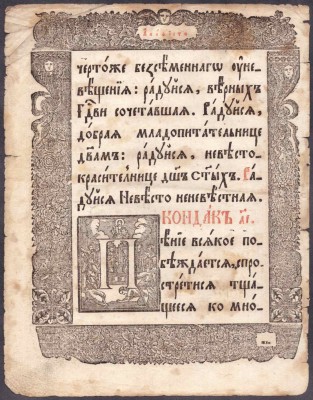 чертоже безсѣменнагѡ ᲂу҆не-
вѣщенїѧ: ра́дꙋйсѧ, вѣ́рныхъ
гдⷭ҇ви сочета́вшаѧ. Ра́дꙋйсѧ,
до́браѧ младопита́тельнице
дв҃амъ: ра́дꙋйсѧ, невѣ́сто
краси́тельнице дш҃ъ ст҃ы́хъ. Ра́-
дꙋйсѧ Невѣ́сто неневѣ́стнаѧ.
КОНДА́КЪ
П
ѣ́нїе всѧ́кое по-
бѣжда́етсѧ, спро-
стре́тисѧ тща́-
щеесѧ ко мно́-